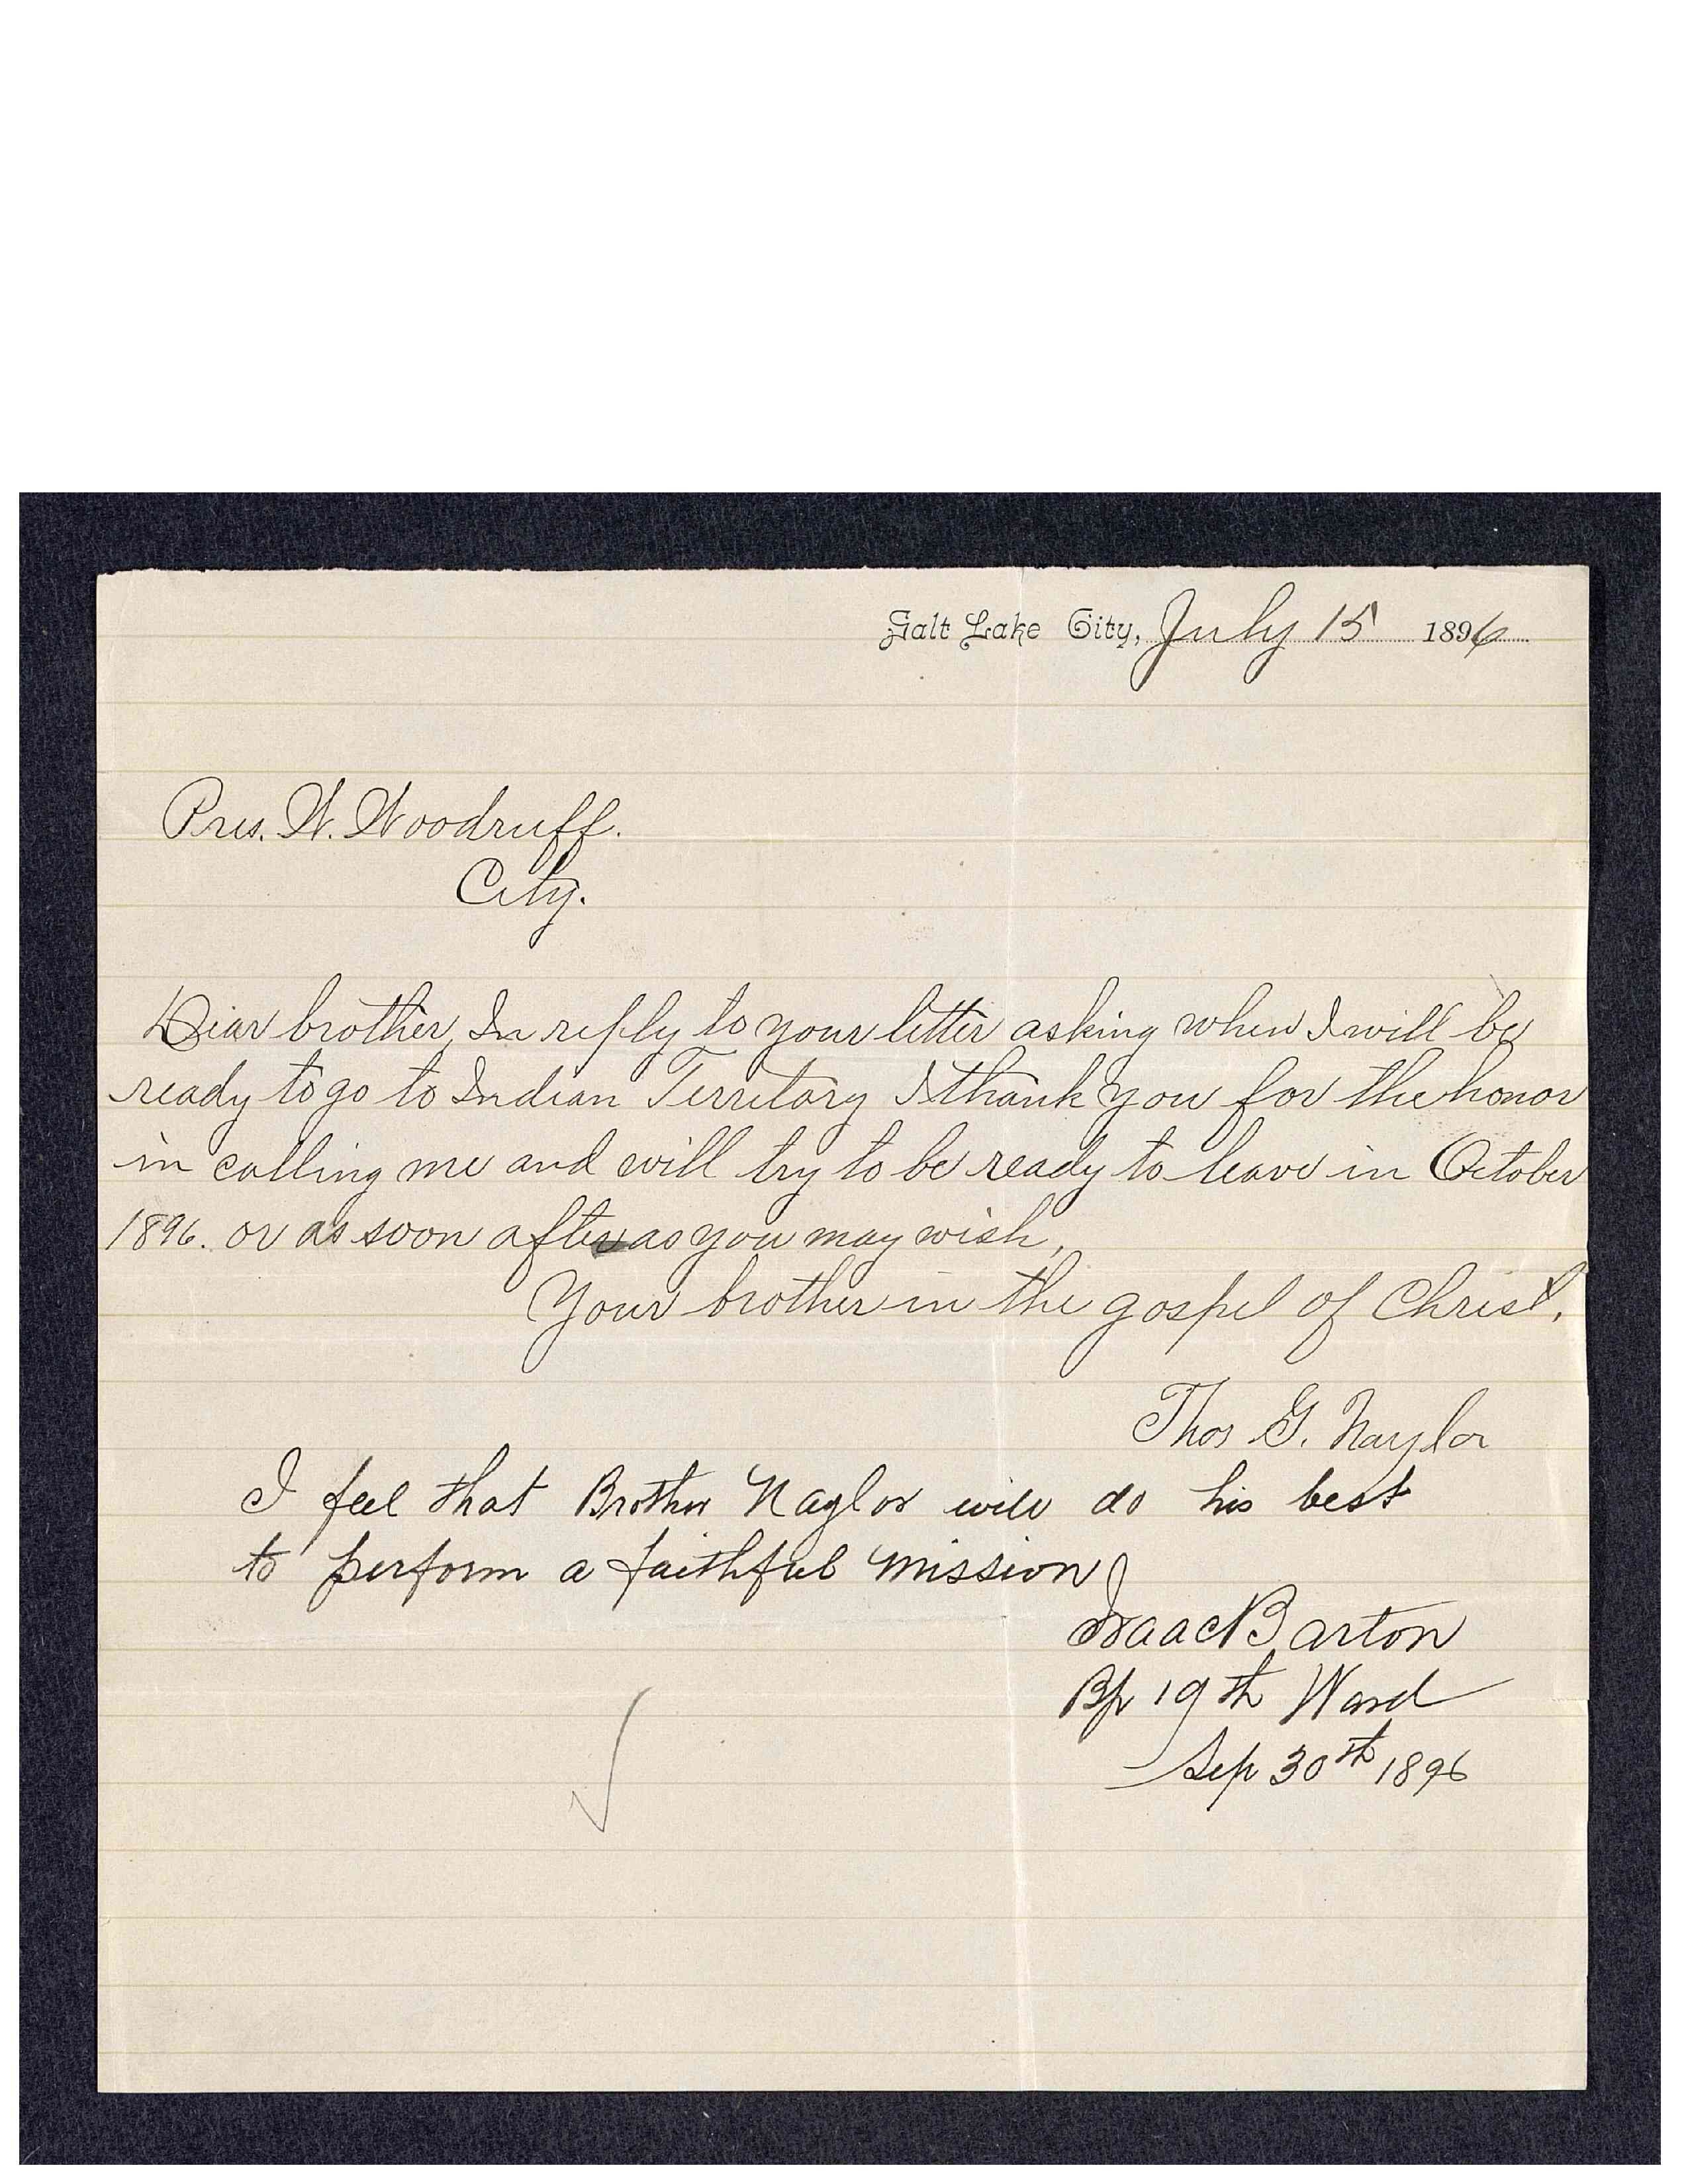 Salt Lake City, July 15 1896
Pres. W. Woodruff.
City.
Dear brother, In reply to your letter asking when I will be
ready to go to Indian Territory I thank you for the honor
in calling me and will try to be ready to leave in October
1896. or as soon after as you may wish,
Your brother in the gospel of Christ,
Thos G. Naylor
I feel that Brother Naylor will do his best
to perform a faithful mission
Isaac Barton
Bp 19th Ward
Sep 30th 1896